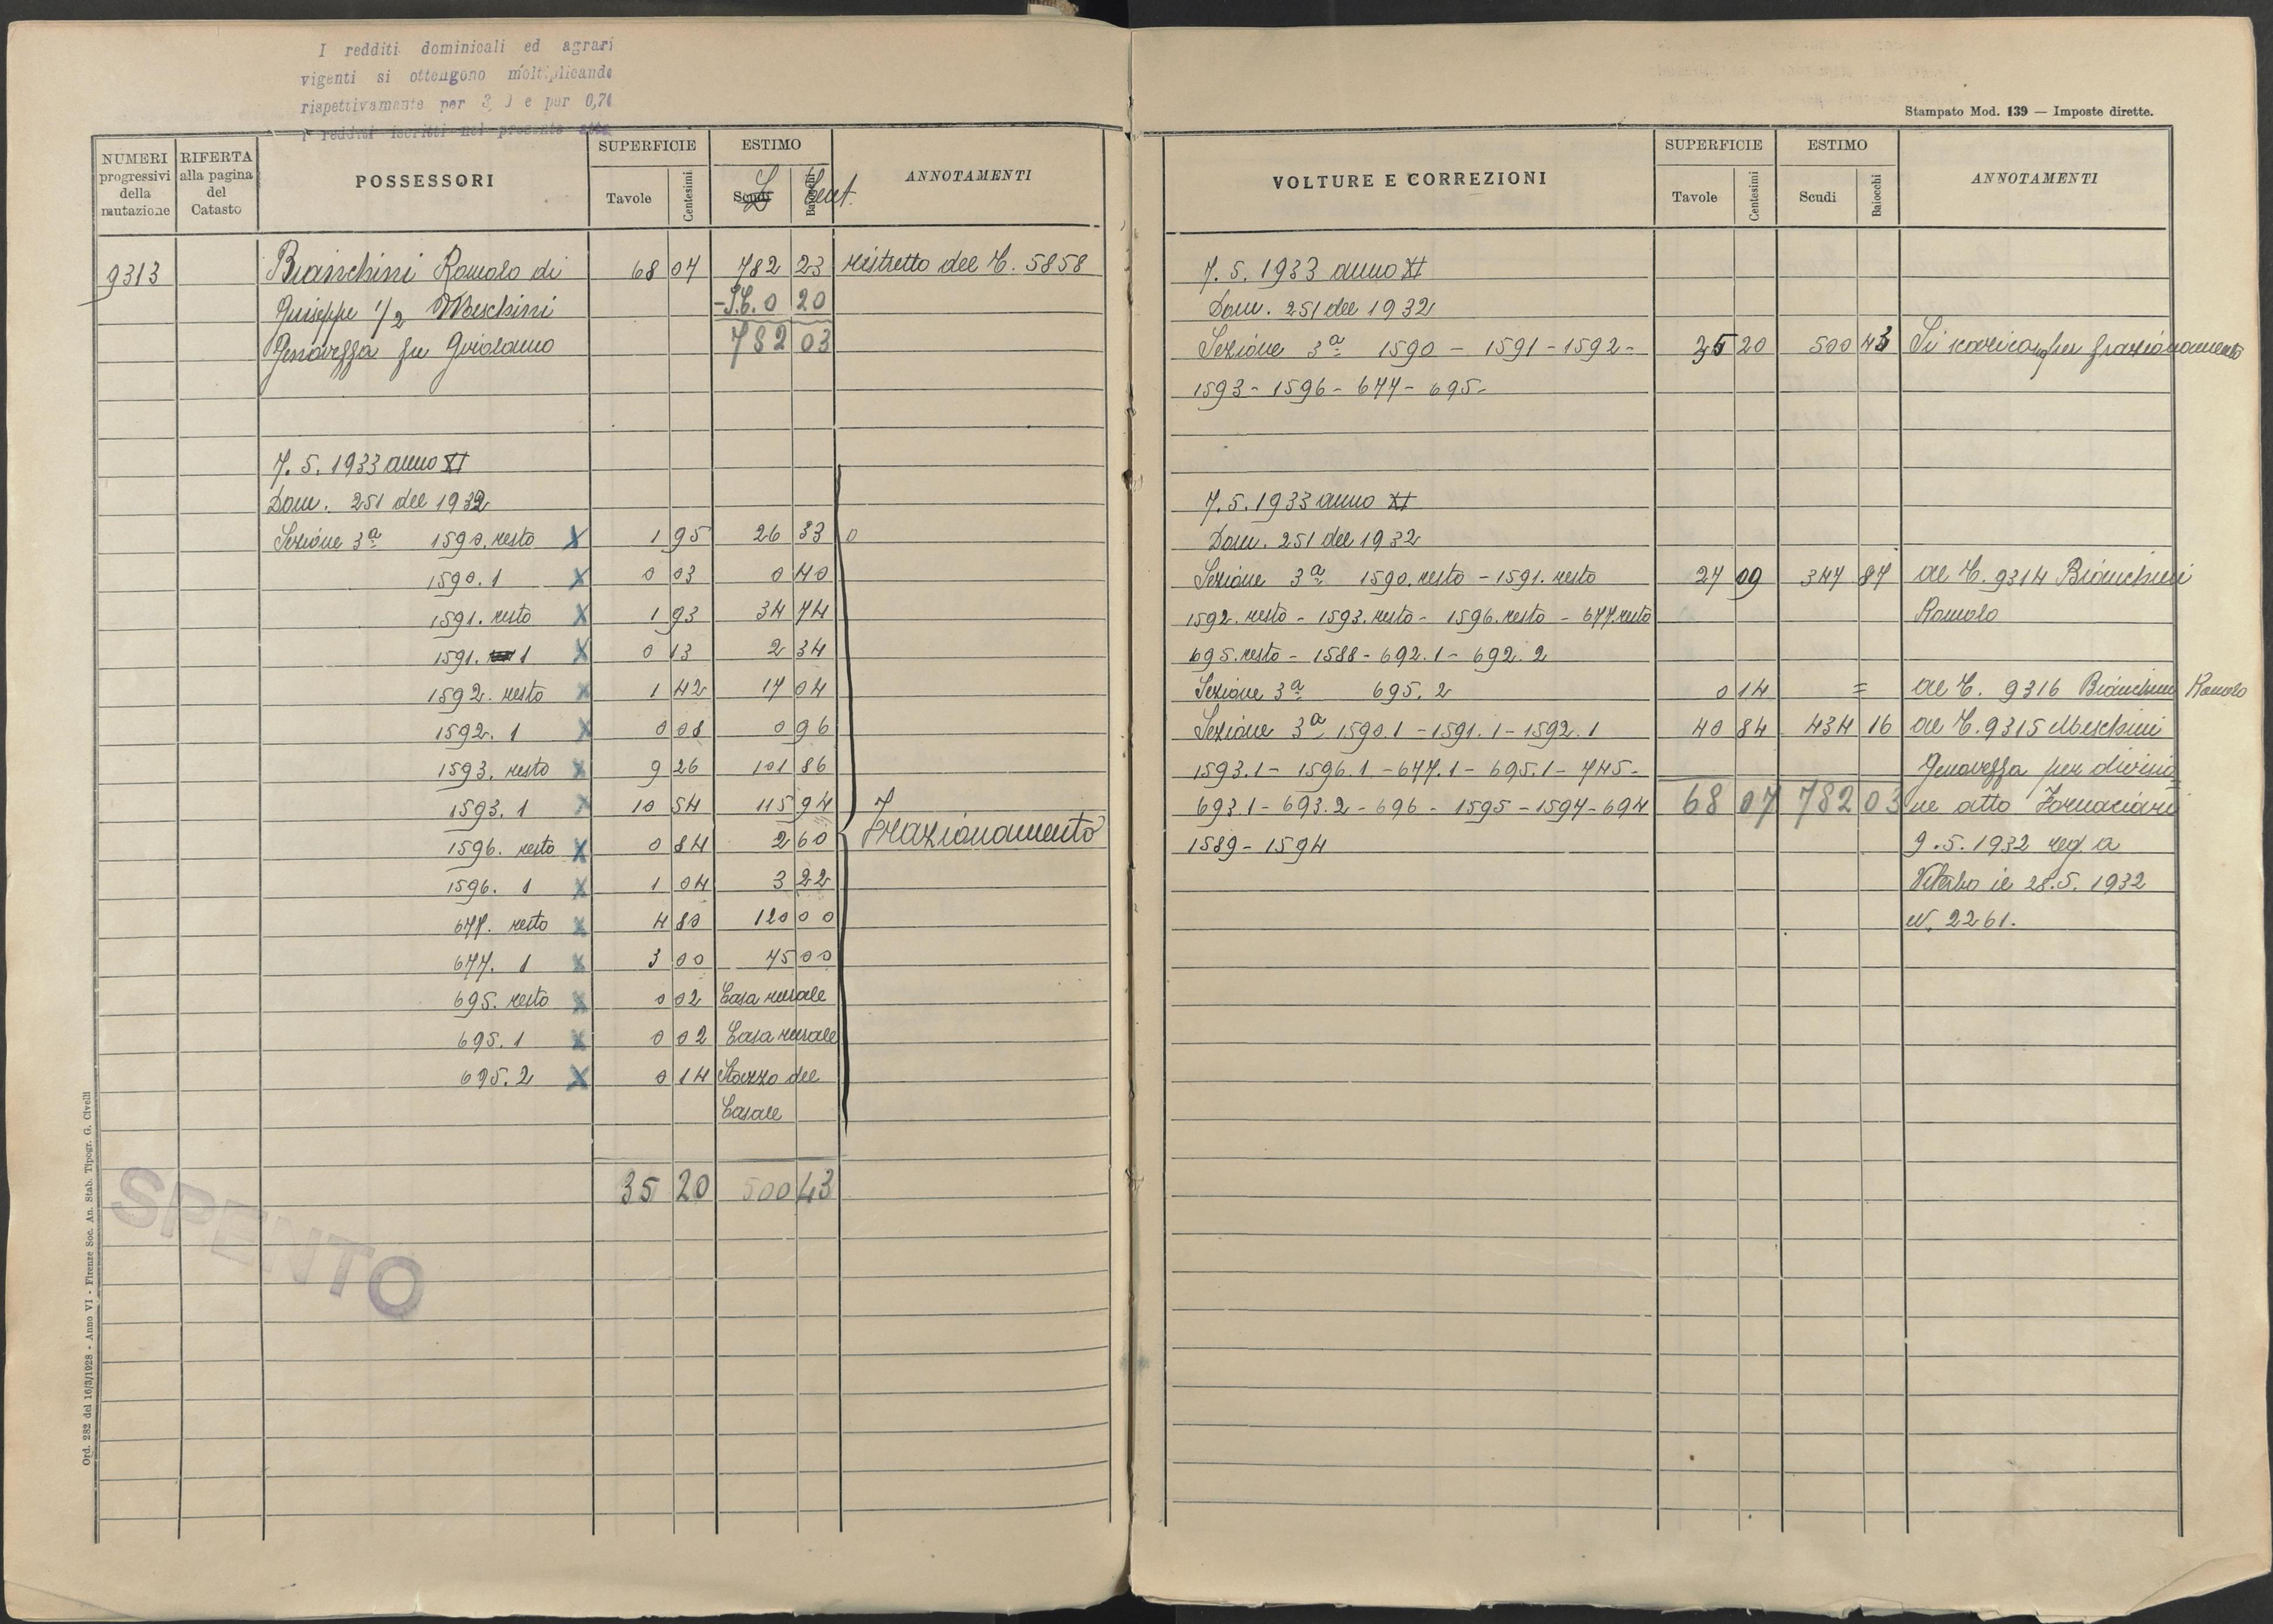 I redditi dominicali ed agrari
vigenti si ottengono moltiplicando
rispettivamente per 3, e per 0,70
i redditi iscritti nel presente atto
NUMERI progressivi della mutazione
RIFERTA alla pagina del Catasto
POSSESSORI
SUPERFICIE
Tavole Centesimi
ESTIMO
Scudi Baiocchi
L Cent.
ANNOTAMENTI
9313 Bianchini Romolo di 68 07 782 23 ristretto del C. 5858
Giuseppe 1/2 Meschini 0 20
Genoveffa fu Girolamo 782 03
7. 5. 1933 anno XI
Dom. 251 del 1932
Sezione 3ª 1590. resto X 1 95 26 33 0
1590. 1 X 0 03 0 40
1591. resto X 1 93 34 74
1591. 1 X 0 13 2 34
1592. resto X 1 42 17 04
1592. 1 X 0 08 0 96
1593. resto X 9 26 101 86
1593. 1 X 10 54 115 94
Frazionamento
1596. resto X 0 84 2 60
1596. 1 X 1 04 3 22
677. resto X 4 80 120 00
677. 1 X 3 00 75 00
695. resto X 0 02 Casa rurale
695. 1 X 0 02 Casa rurale
695. 2 X 0 14 Stazzo del
Casale
35 20 500 43
SPENTO
Ord. 282 del 16/3/1928 - Anno VI - Firenze Soc. An. Stab. Tipogr. G. Civelli
Stampato Mod. 139 — Imposte dirette.
VOLTURE E CORREZIONI
SUPERFICIE
Tavole Centesimi
ESTIMO
Scudi Baiocchi
ANNOTAMENTI
7. 5. 1933 anno XI
Dom. 251 del 1932
Sezione 3ª 1590 - 1591 - 1592 - 35 20 500 43 Si scaricano per frazionamento
1593 - 1596 - 677 - 695 -
7. 5. 1933 anno XI
Dom. 251 del 1932
Sezione 3ª 1590. resto - 1591. resto 27 09 347 87 al C. 9314 Bianchini
1592. resto - 1593. resto - 1596. resto - 677 resto Romolo
695. resto - 1588 - 692. 1 - 692. 2
Sezione 3ª 695. 2 0 14 = al C. 9316 Bianchini Romolo
Sezione 3ª 1590.1 - 1591. 1 - 1592. 1 40 84 434 16 al C. 9315 Meschini
1593.1 - 1596.1 - 677.1 - 695.1 - 745 - Genoveffa per divisio
693.1 - 693.2 - 696 - 1595 - 1597 - 694 68 07 782 03 ne atto Fornaciari
1589 - 1594 9. 5. 1932 reg. a
Viterbo il 28. 5. 1932
N. 2261.